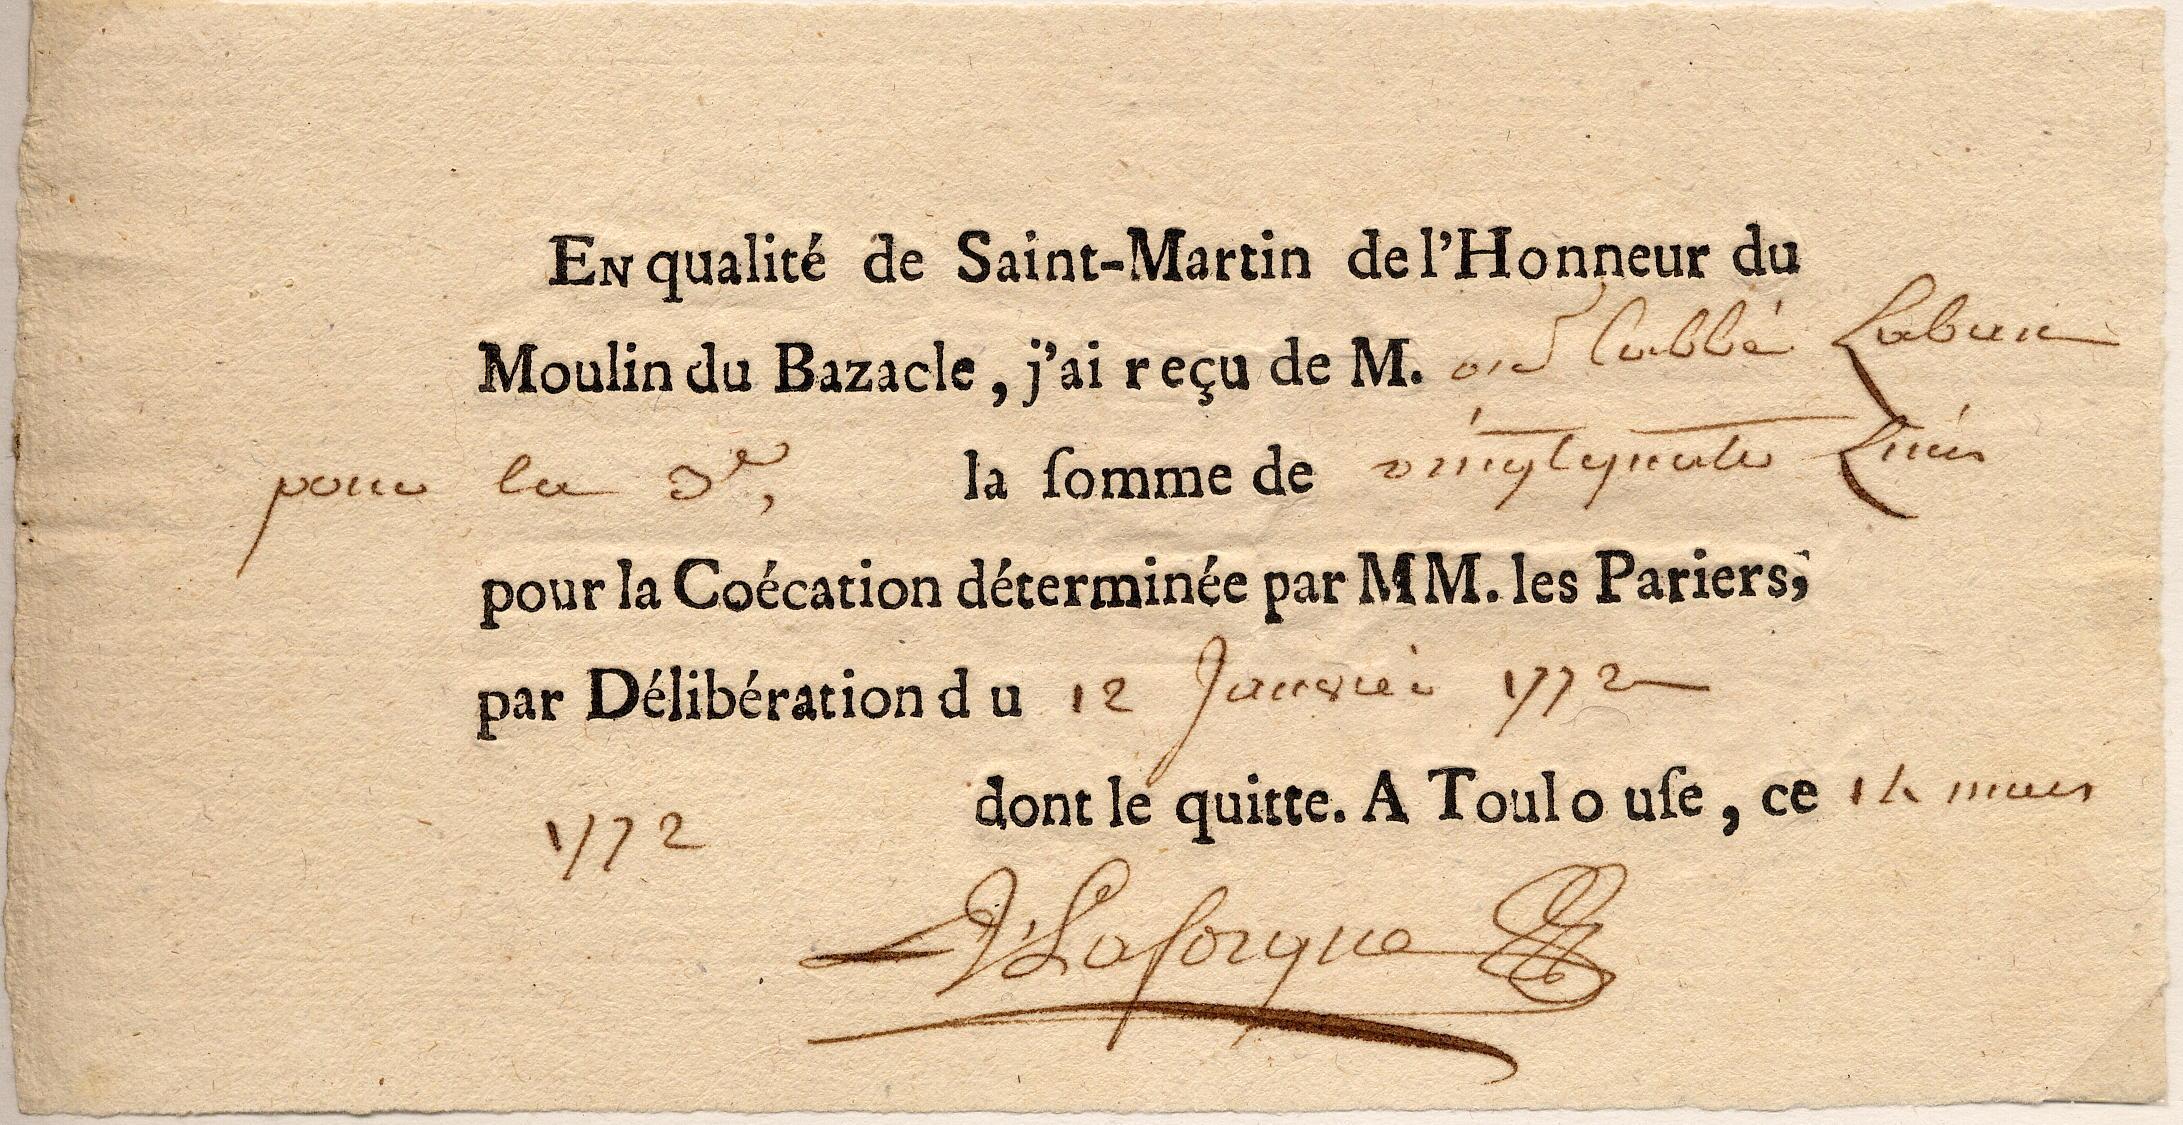 EN qualité de Saint-Martin de l'Honneur du
Moulin du Bazacle, j'ai reçu de M. l'abbé
pour la 3e, la ſomme de vingtquatre Livres
pour la Coécation déterminée par MM. les Pariers,
par Délibération du 12 Janvier 1772
dont le quitte. A Toulouſe, ce 14 mars
1772
Laforgue